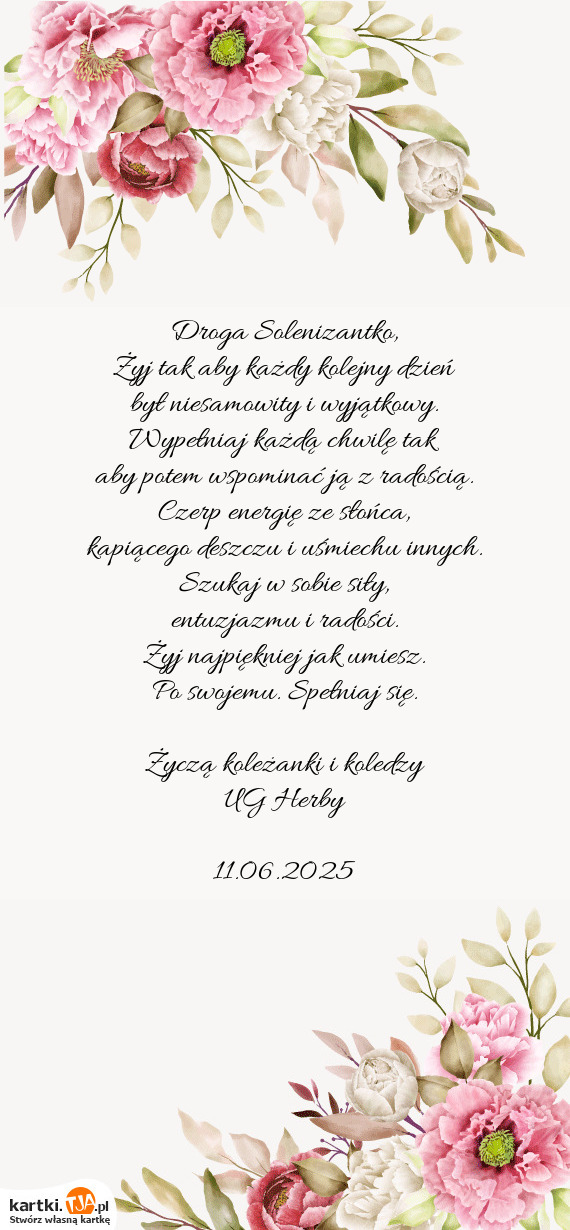 Droga Solenizantko,
Żyj tak aby każdy kolejny dzień
był niesamowity i wyjątkowy.
Wypełniaj każdą chwilę tak
aby potem wspominać ją z radością.
Czerp energię ze słońca,
kapiącego deszczu i uśmiechu innych.
Szukaj w sobie siły,
entuzjazmu i radości.
Żyj najpiękniej jak umiesz.
Po swojemu. Spełniaj się.
Życzą koleżanki i koledzy
UG Herby
11.06.2025
kartki.TJA.pl
Stwórz własną kartkę